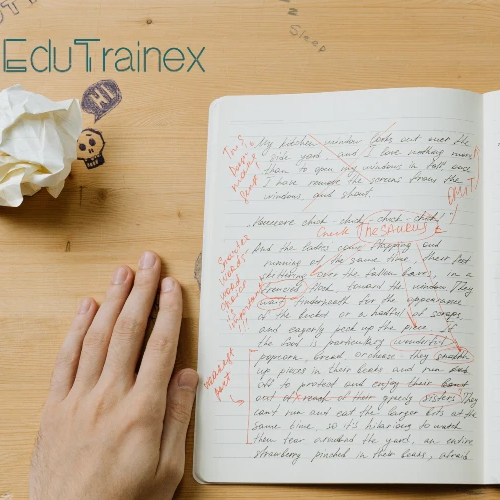 EduTrainex
HI
Sleep
My kitchen window looks out over the
side yard and I love nothing more
than to open my windows in fall, once
I have the screens from the
windows and shout.
chick-chick, chick-chick!
Check THESAURUS
EDIT
And the ladies come flapping and
running at the same time, their feet
over the fallen leaves, in a
toward the window. They
wait underneath for the appearance
of the bucket or a handful of scraps
and eagerly peck up the piece. If
the food is particularly wonderful
popcorn, bread or cheese - they snatch
up pieces in their beaks and run
off to protect and enjoy their
out of reach of their greedy sisters. They
can't run and eat the larger bits at the
same time, so it's hilarious to watch
them tear around the yard, an entire
strawberry pinched in their beaks, afraid
important!!!
weakest
part